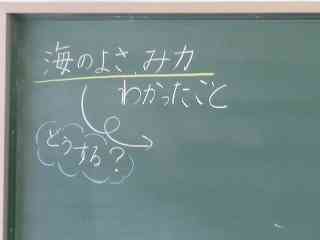 海のよさ、み力
わかったこと
どうする？